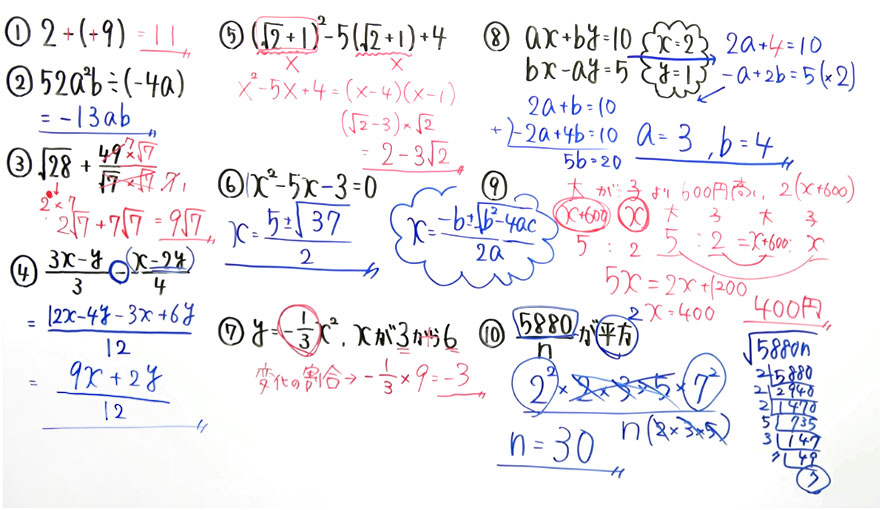 ① 2+(+9) = 11
② 52a²b÷(-4a)
= -13ab
③ √28 + 49×√7/√7×√7
2²×7
2√7+7√7=9√7
④ 3x-y/3 - (x-2y)/4
= 12x-4y-3x+6y/12
= 9x+2y/12
⑤ (√2+1)²-5(√2+1)+4
x x
x²-5x+4=(x-4)(x-1)
(√2-3)×√2
= 2-3√2
⑥ x²-5x-3=0
x=5±√37/2
x=-b±√b²-4ac/2a
⑦ y=-1/3x², xが3から6
変化の割合→-1/3×9=-3
⑧ ax+by=10
bx-ay=5
x=2
y=1
2a+4=10
-a+2b=5(×2)
2a+b=10
+)-2a+4b=10
5b=20
a=3, b=4
⑨
大が3より600円高い, 2(x+600)
x+600 x 大 3 大 3
5 : 2 5 : 2 = x+600 : x
5x=2x+1200
x=400
400円
⑩ 5880/nが平方
2
2²×2×3×5×7²
n(2×3×5)
n=30
√5880n
2 5880
2 2940
2 1470
5 735
3 147
7 49
7